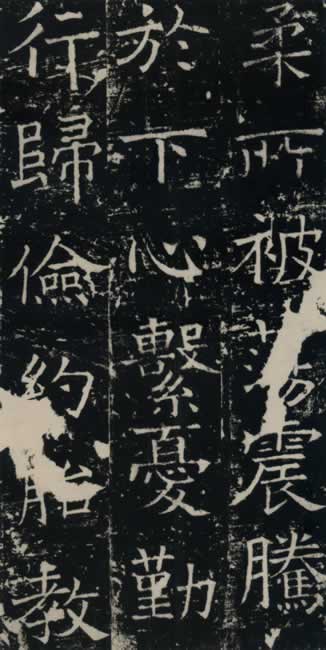 柔所被荡震騰
於下心繫憂勤
行歸儉約胎教